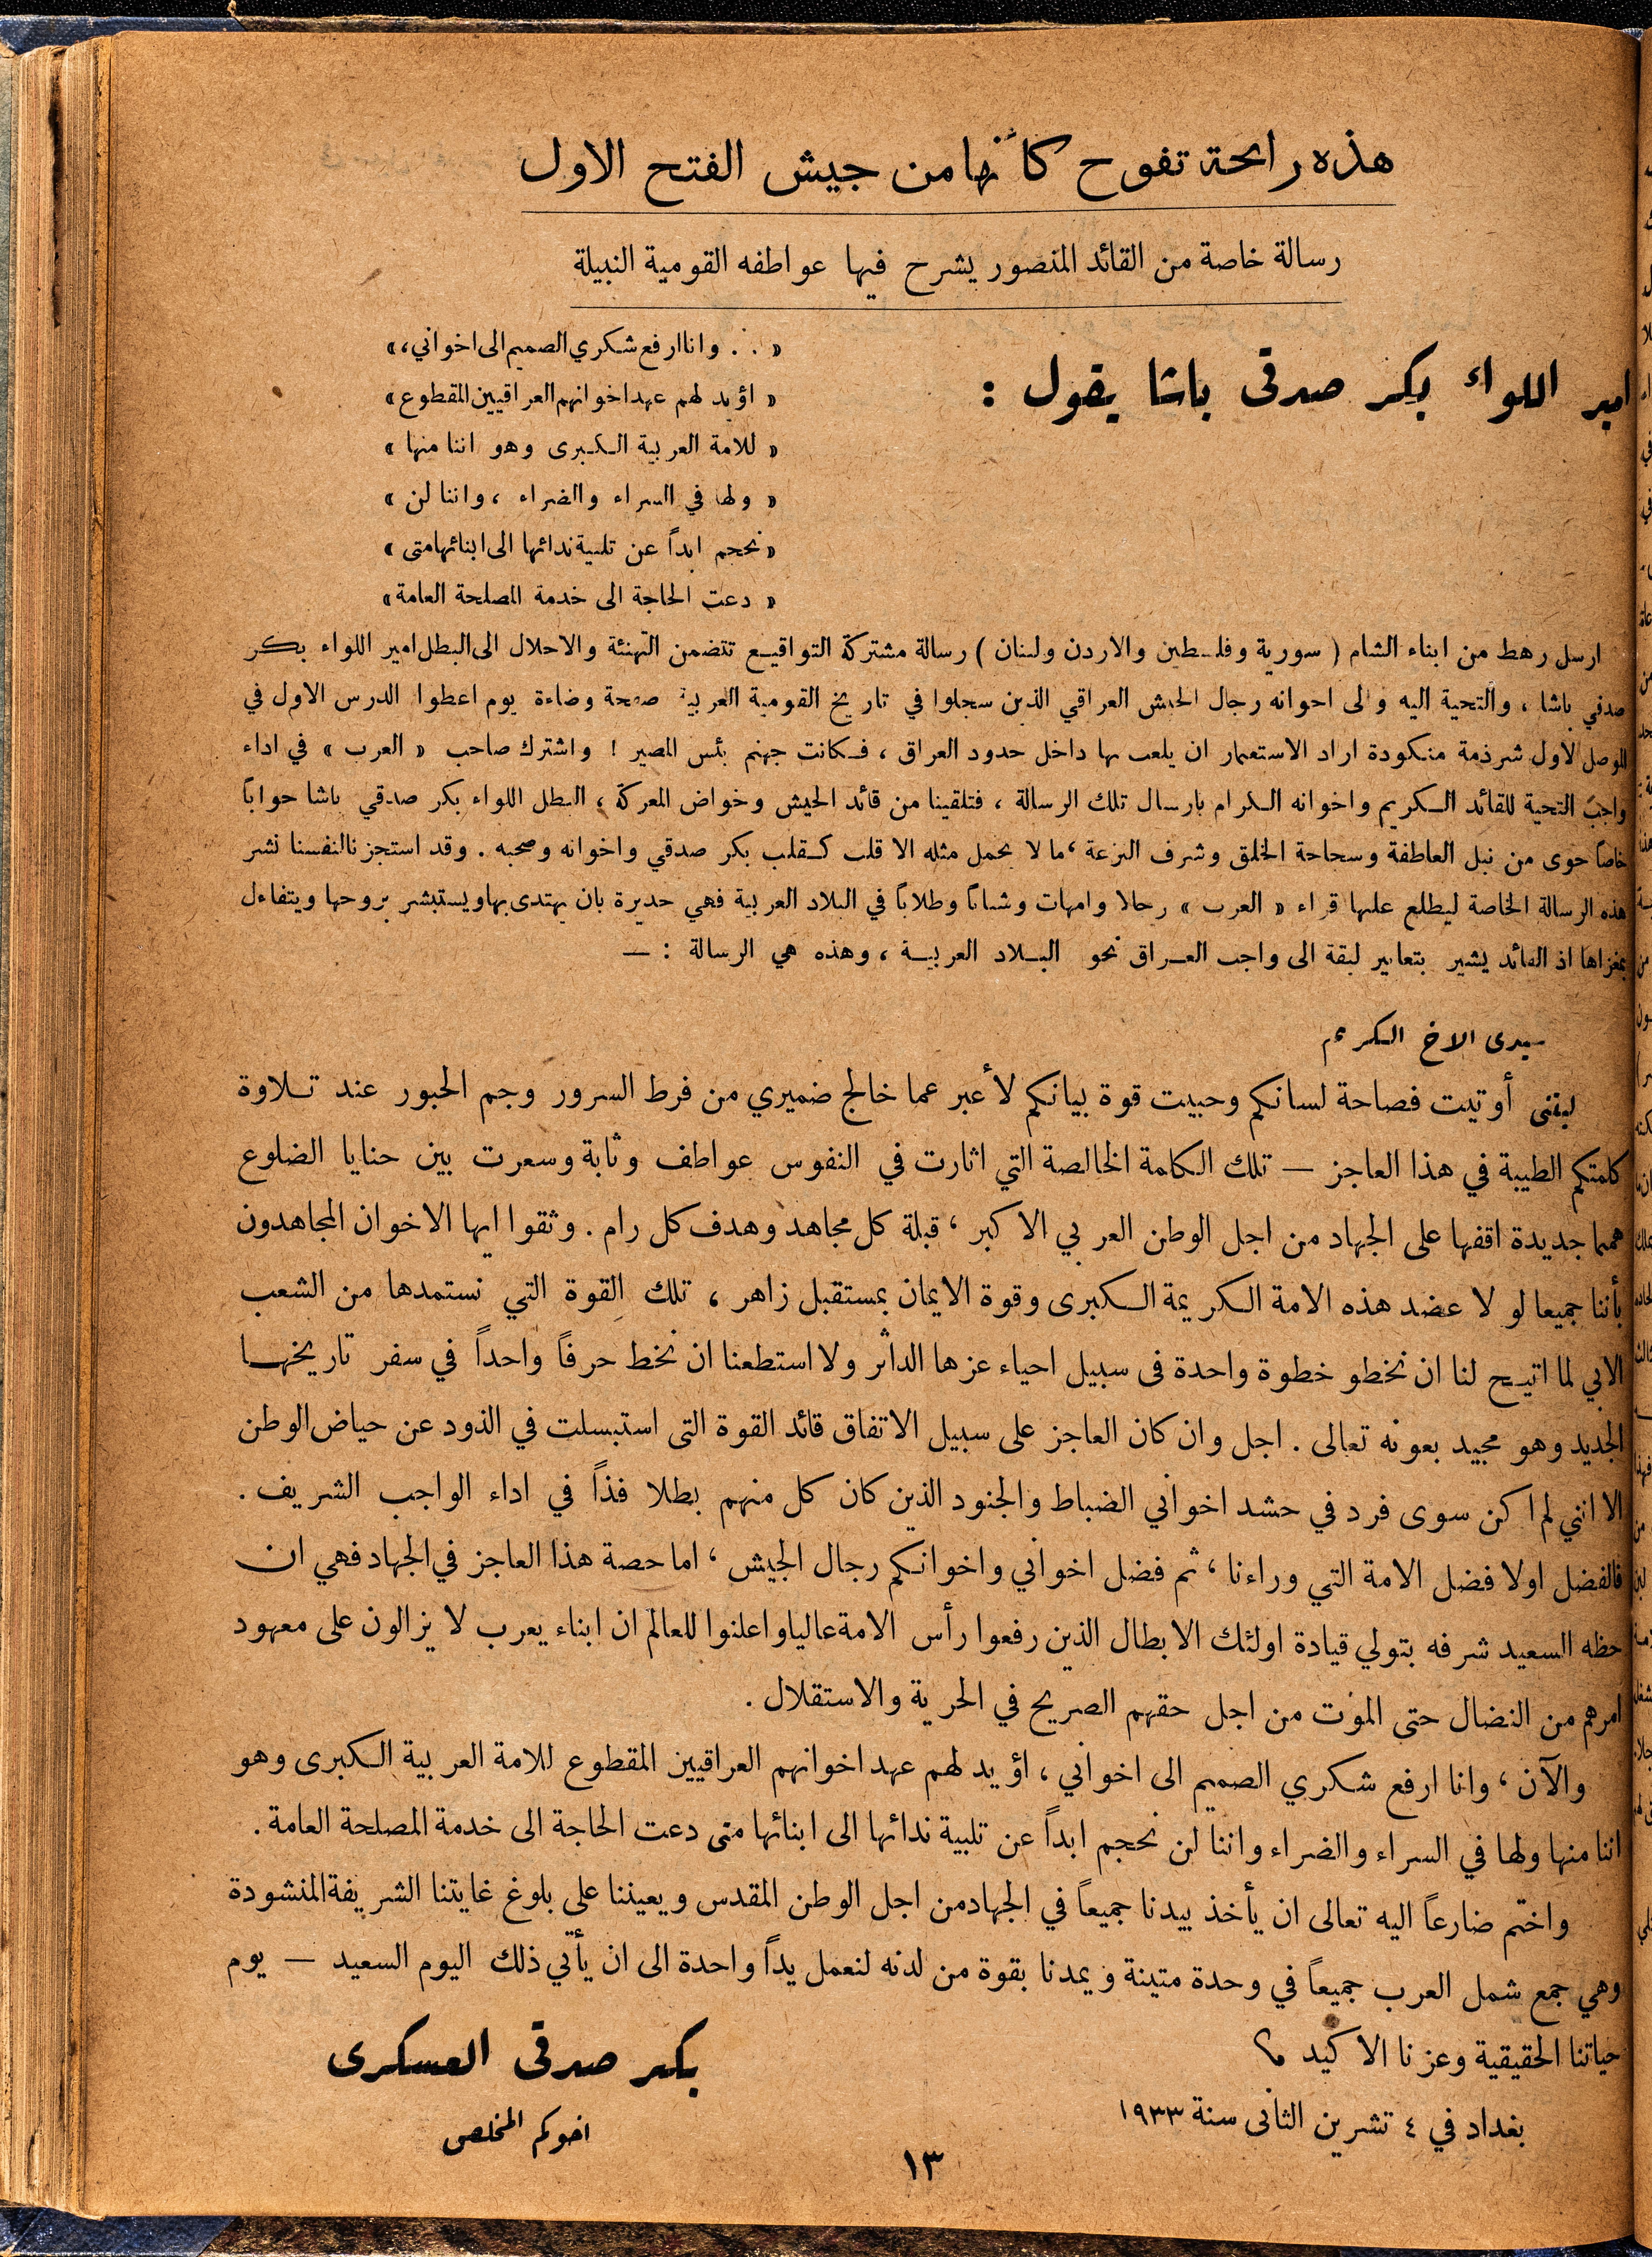 هذه رائحة تفوح كأنها من جيش الفتح الاول
رسالة خاصة من القائد المنصور يشرح فيها عواطفه القومية النبيلة
امير اللواء بكر صدقى باشا يقول :
« . . وانا ارفع شكري الصميم الى اخواني، »
« اؤيد لهم عهد اخوانهم العراقيين المقطوع »
« للامة العربية الكبرى وهو اننا منها »
« ولها في السراء والضراء ، واننا لن »
« نحجم ابداً عن تلبية ندائها الى ابنائها متى »
« دعت الحاجة الى خدمة المصلحة العامة »
ارسل رهط من ابناء الشام ( سورية وفلسطين والاردن ولبنان ) رسالة مشتركة التواقيع تتضمن التهنئة والاجلال الى البطل امير اللواء بكر
صدقي باشا ، والتحية اليه والى اخوانه رجال الجيش العراقي الذين سجلوا في تاريخ القومية العربية صفحة وضاءة يوم اعطوا الدرس الاول في
الموصل لأول شرذمة منكودة اراد الاستعمار ان يلعب بها داخل حدود العراق ، فكانت جهنم بئس المصير ! واشترك صاحب « العرب » في اداء
واجب التحية للقائد الكريم واخوانه الكرام بارسال تلك الرسالة ، فتلقينا من قائد الجيش وخواض المعركة ، البطل اللواء بكر صدقي باشا جواباً
خاصاً حوى من نبل العاطفة وسجاحة الخلق وشرف النزعة ، ما لا يحمل مثله الا قلب كقلب بكر صدقي واخوانه وصحبه . وقد استجزنا لنفسنا نشر
هذه الرسالة الخاصة ليطلع عليها قراء « العرب » رجالا وامهات وشباناً وطلاباً في البلاد العربية فهي جديرة بان يهتدى بها ويستبشر بروحها ويتفاءل
بمغزاها اذ القائد يشير بتعابير لبقة الى واجب العراق نحو البلاد العربية ، وهذه هي الرسالة : —
سيدى الاخ الكريم
ليتنى أوتيت فصاحة لسانكم وحبيت قوة بيانكم لأعبر عما خالج ضميري من فرط السرور وجم الحبور عند تلاوة
كلمتكم الطيبة في هذا العاجز — تلك الكلمة الخالصة التي اثارت في النفوس عواطف وثابة وسعرت بين حنايا الضلوع
همما جديدة اقفها على الجهاد من اجل الوطن العربي الاكبر ، قبلة كل مجاهد وهدف كل رام . وثقوا ايها الاخوان المجاهدون
بأننا جميعا لو لا عضد هذه الامة الكريمة الكبرى وقوة الايمان بمستقبل زاهر ، تلك القوة التي نستمدها من الشعب
الابي لما اتيح لنا ان نخطو خطوة واحدة فى سبيل احياء عزها الداثر ولا استطعنا ان نخط حرفاً واحداً في سفر تاريخها
الجديد وهو مجيد بعونه تعالى . اجل وان كان العاجز على سبيل الاتفاق قائد القوة التى استبسلت في الذود عن حياض الوطن
الا انني لم اكن سوى فرد في حشد اخواني الضباط والجنود الذين كان كل منهم بطلا فذاً في اداء الواجب الشريف .
فالفضل اولا فضل الامة التي وراءنا ، ثم فضل اخواني واخوانكم رجال الجيش ، اما حصة هذا العاجز في الجهاد فهي ان
حظه السعيد شرفه بتولي قيادة اولئك الابطال الذين رفعوا رأس الامة عاليا واعلنوا للعالم ان ابناء يعرب لا يزالون على معهود
امرهم من النضال حتى الموت من اجل حقهم الصريح في الحرية والاستقلال .
والآن ، وانا ارفع شكري الصميم الى اخواني ، اؤيد لهم عهد اخوانهم العراقيين المقطوع للامة العربية الكبرى وهو
اننا منها ولها في السراء والضراء واننا لن نحجم ابداً عن تلبية ندائها الى ابنائها متى دعت الحاجة الى خدمة المصلحة العامة .
واختم ضارعاً اليه تعالى ان يأخذ بيدنا جميعاً في الجهاد من اجل الوطن المقدس ويعيننا على بلوغ غايتنا الشريفة المنشودة
وهي جمع شمل العرب جميعاً في وحدة متينة ويمدنا بقوة من لدنه لنعمل يداً واحدة الى ان يأتي ذلك اليوم السعيد — يوم
حياتنا الحقيقية وعزنا الاكيد
بكر صدقى العسكرى
بغداد في ٤ تشرين الثانى سنة ١٩٣٣
اخوكم المخلص
١٣